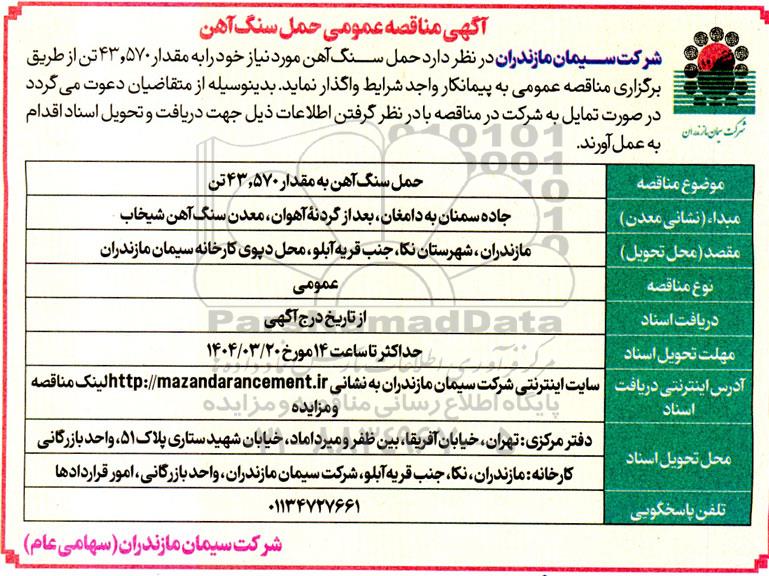 آگهی مناقصه عمومی حمل سنگ آهن
شرکت سیمان مازندران در نظر دارد حمل سنگ آهن مورد نیاز خود را به مقدار ۴۳,۵۷۰ تن از طریق
برگزاری مناقصه عمومی به پیمانکار واجد شرایط واگذار نماید. بدینوسیله از متقاضیان دعوت می گردد
در صورت تمایل به شرکت در مناقصه با در نظر گرفتن اطلاعات ذیل جهت دریافت و تحویل اسناد اقدام
به عمل آورند.
شرکت سیمان مازندران
موضوع مناقصه
حمل سنگ آهن به مقدار ۴۳,۵۷۰ تن
مبداء (نشانی معدن)
جاده سمنان به دامغان، بعد از گردنهٔ آهوان، معدن سنگ آهن شیخاب
مقصد (محل تحویل)
مازندران، شهرستان نکا، جنب قریه آبلو، محل دپوی کارخانه سیمان مازندران
نوع مناقصه
عمومی
دریافت اسناد
از تاریخ درج آگهی
مهلت تحویل اسناد
حداکثر تا ساعت ۱۴ مورخ ۱۴۰۴/۰۳/۲۰
آدرس اینترنتی دریافت
اسناد
سایت اینترنتی شرکت سیمان مازندران به نشانی http://mazandarancement.ir لینک مناقصه
و مزایده
محل تحویل اسناد
دفتر مرکزی: تهران، خیابان آفریقا، بین ظفر و میرداماد، خیابان شهید ستاری پلاک ۵۱، واحد بازرگانی
کارخانه: مازندران، نکا، جنب قریه آبلو، شرکت سیمان مازندران، واحد بازرگانی، امور قراردادها
تلفن پاسخگویی
۰۱۱۳۴۷۲۷۶۶۱
شرکت سیمان مازندران (سهامی عام)
ParsNamadData
پایگاه اطلاع رسانی مناقصه و مزایده